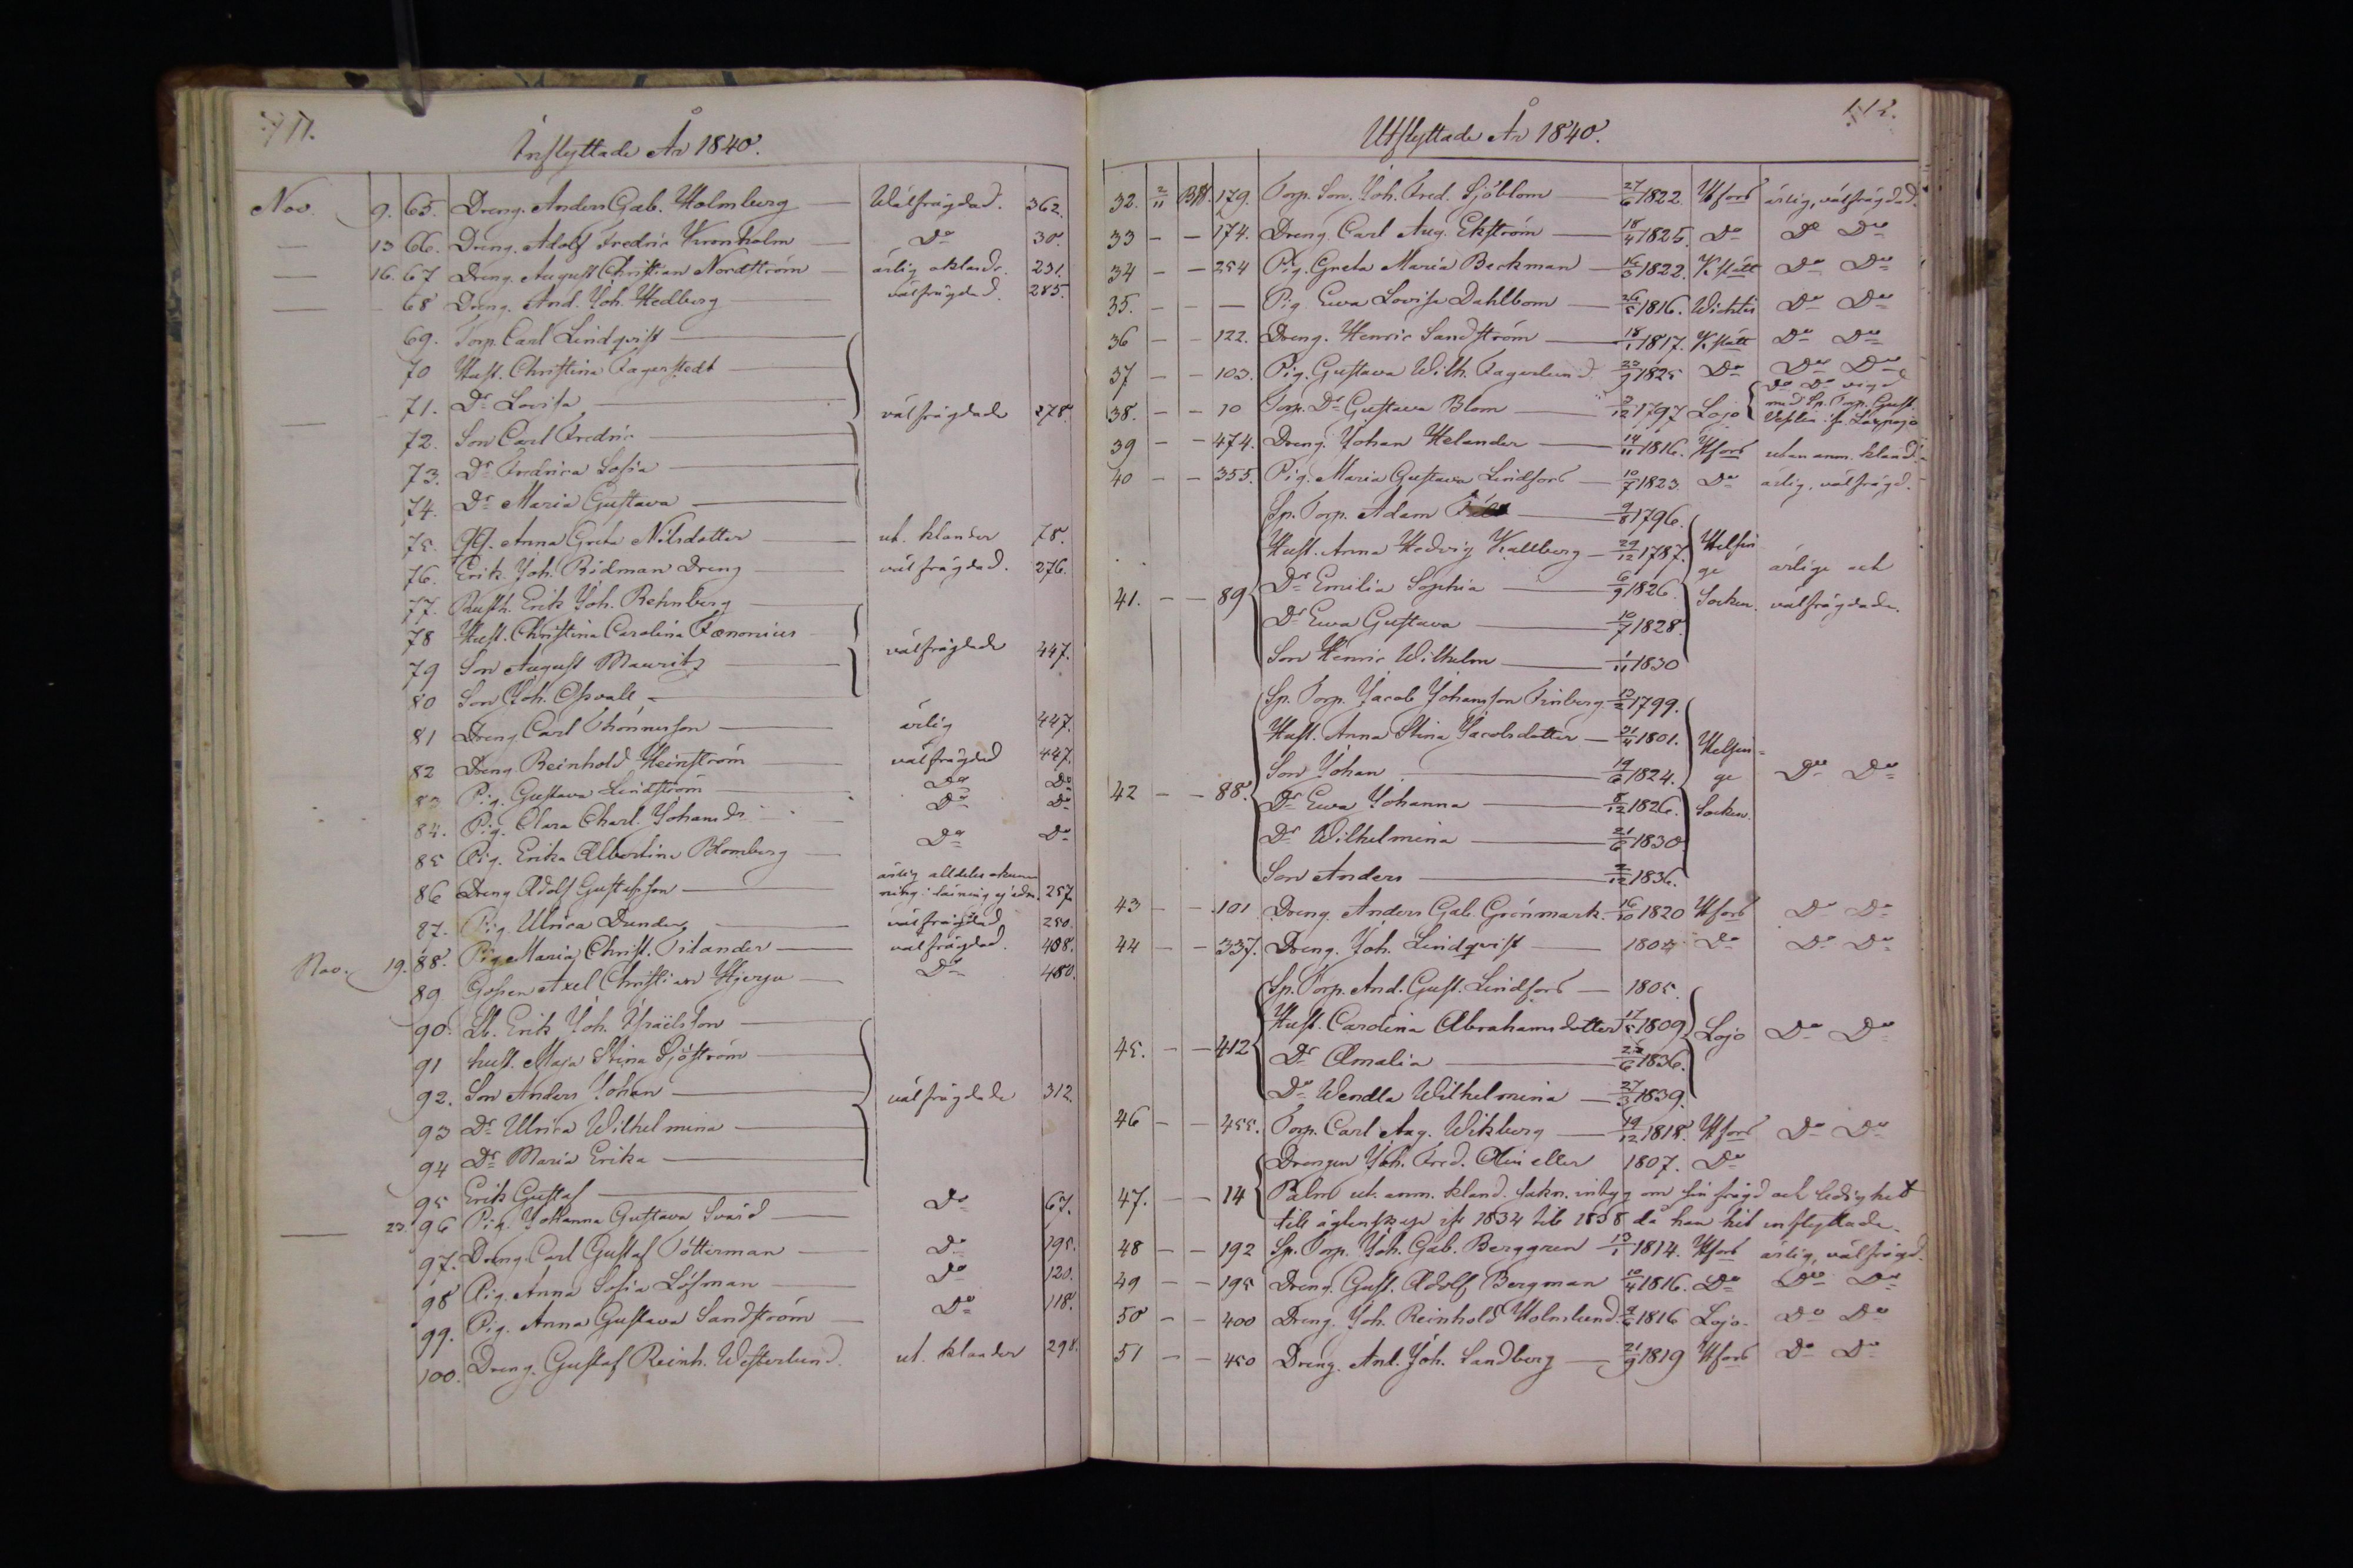 Inflyttade År 1840.
Nov. 9. 65. Dreng. Anders Gab. Holmberg — Wälfrägdad. 362.
— 13 66. Dreng. Adolf Fredric Kronholm — Do 30.
— 16. 67 Dreng. August Christian Nordström — ärlig oklandr. 231.
— 68 Dreng. And. Joh. Hedberg — välfrägdad. 285.
69. Torp. Carl Lindqvist —
70 Hust. Christina Fagerstedt —
71. Dr Lovisa —
— välfrägdade 278.
72. Son Carl Fredric —
73. Dr Fredrica Sofia —
74. Dr Maria Gustava —
75. Anna Greta Nilsdotter — ut. klander 78.
76. Erik Joh. Ridman Dreng — välfrägdad. 276.
77. Erik Joh. Rehnberg —
78 Hust. Christina Carolina Fænonius
79 Son August Mauritz — välfrägdade 447.
80 Son Joh. Osvald —
81 Dreng Carl Thönnesson — ärlig 447.
82 Dreng. Reinhold Heinström — välfrägdad 447.
83 Pig. Gustava Lindström — Do Do
84. Pig. Clara Charl. Johansdr — Do Do
85 Pig. Erika Albertina Blomberg — Do Do
ärlig alldeles okunn
86 Dreng Adolf Gustafsson — ning i läsning 257.
87. Pig. Ulrica Dunder — välfrägdad 250.
Nov. 19. 88. Pig. Maria Christ. Silander — välfrägdad. 408.
89 Gossen Axel Christian Hjerpe — Do 480.
90. Erik Joh. Israëlsson —
91 hust. Maja Stina Sjöström —
92. Son Anders Johan — välfrägdade 312.
93 Dr Ulrica Wilhelmina —
94 Dr Maria Erika —
95 Erik Gustaf —
— 23. 96 Pig. Johanna Gustava Svärd — Do 67.
97. Dreng. Carl Gustaf Pötterman — Do 195.
98 Pig. Anna Sofia Löfman — Do 120.
99. Pig. Anna Gustava Sandström — Do 118.
100. Dreng. Gustaf Reinh. Westerlund. ut. klander 298.
112.
Utflyttade År 1840.
32. 2/11 179. Torp. Son. Joh. Fred. Sjöblom — 27/6 1822. Hfors ärlig, välfrägdad.
33 — — 174. Dreng. Carl Aug. Ekström — 18/4 1825. Do Do Do
34 — — 254 Pig. Greta Maria Beckman — 16/3 1822. Kslätt Do Do
35. — — — Pig. Ewa Lovisa Dahlbom — 26/5 1816. Wichtis Do Do
36 — — 122. Dreng. Henric Sandström — 18/1 1817. Kslätt Do Do
37 — — 103. Pig. Gustava Wilh. Fagerlund 23/9 1825 Do Do Do
Do Do vigd
38. — — 10 Torp. Dr Gustava Blom — 2/12 1797 Lojo med Sp. Torp. Gust.
39 — — 474. Dreng. Johan Helander — 14/11 1816. Hfors utan anm. kland.
40 — — 355. Pig. Maria Gustava Lindfors — 10/7 1823. Do ärlig, välfrägd.
Sp. Torp. Adam — 9/8 1796.
Hust. Anna Hedvig Kallberg — 29/12 1787. Helsin
ge ärlige och
41. — — 89 Dr Emilia Sophia — 6/9 1826. Socken. välfrägdade.
Dr Ewa Gustava — 10/7 1828.
Son Henric Wilhelm — 1/11 1830
Sp. Torp. Jacob Johansson Finberg 13/2 1799.
Hust. Anna Stina Jacobsdotter — 21/4 1801.
Helsin=
Son Johan — 19/6 1824. ge Do Do
42 — — 88. Dr Ewa Johanna — 8/12 1826. Socken.
Dr Wilhelmina — 21/6 1830.
Son Anders — 2/12 1836.
43 — — 101 Dreng. Anders Gab. Grönmark. 16/10 1820 Hfors Do Do
44 — — 337. Dreng. Joh. Lindqvist — Do Do Do
Sp. Torp. And. Gust. Lindfors — 1805.
Hust. Carolina Abrahamsdotter 17/5 1809 Lojo Do Do
45. — — 412 Dr Amalia — 23/6 1836.
Dr Wendla Wilhelmina — 27/3 1839.
46 — — 455. Torp. Carl Aug. Wikberg — 19/12 1818. Hfors Do Do
Drengen Joh. Fred. Olin eller 1807. Do
47. — — 14 Palm ut. anm. kland. sakn. intyg om sin frägd och ledighet
till äktenskap ifr 1834 till 1838 då han hit inflyttade.
48 — — 192 Sp. Torp. Joh. Gab. Berggren 13/1 1814. Hfors ärlig, välfrägd.
49 — — 195 Dreng. Gust. Adolf Bergman 10/4 1816. Do Do Do
50 — — 400 Dreng. Joh. Reinhold Holmlund 9/6 1816 Lojo. Do Do
51 — — 450 Dreng. And. Joh. Sandberg — 21/9 1819 Hfors Do Do